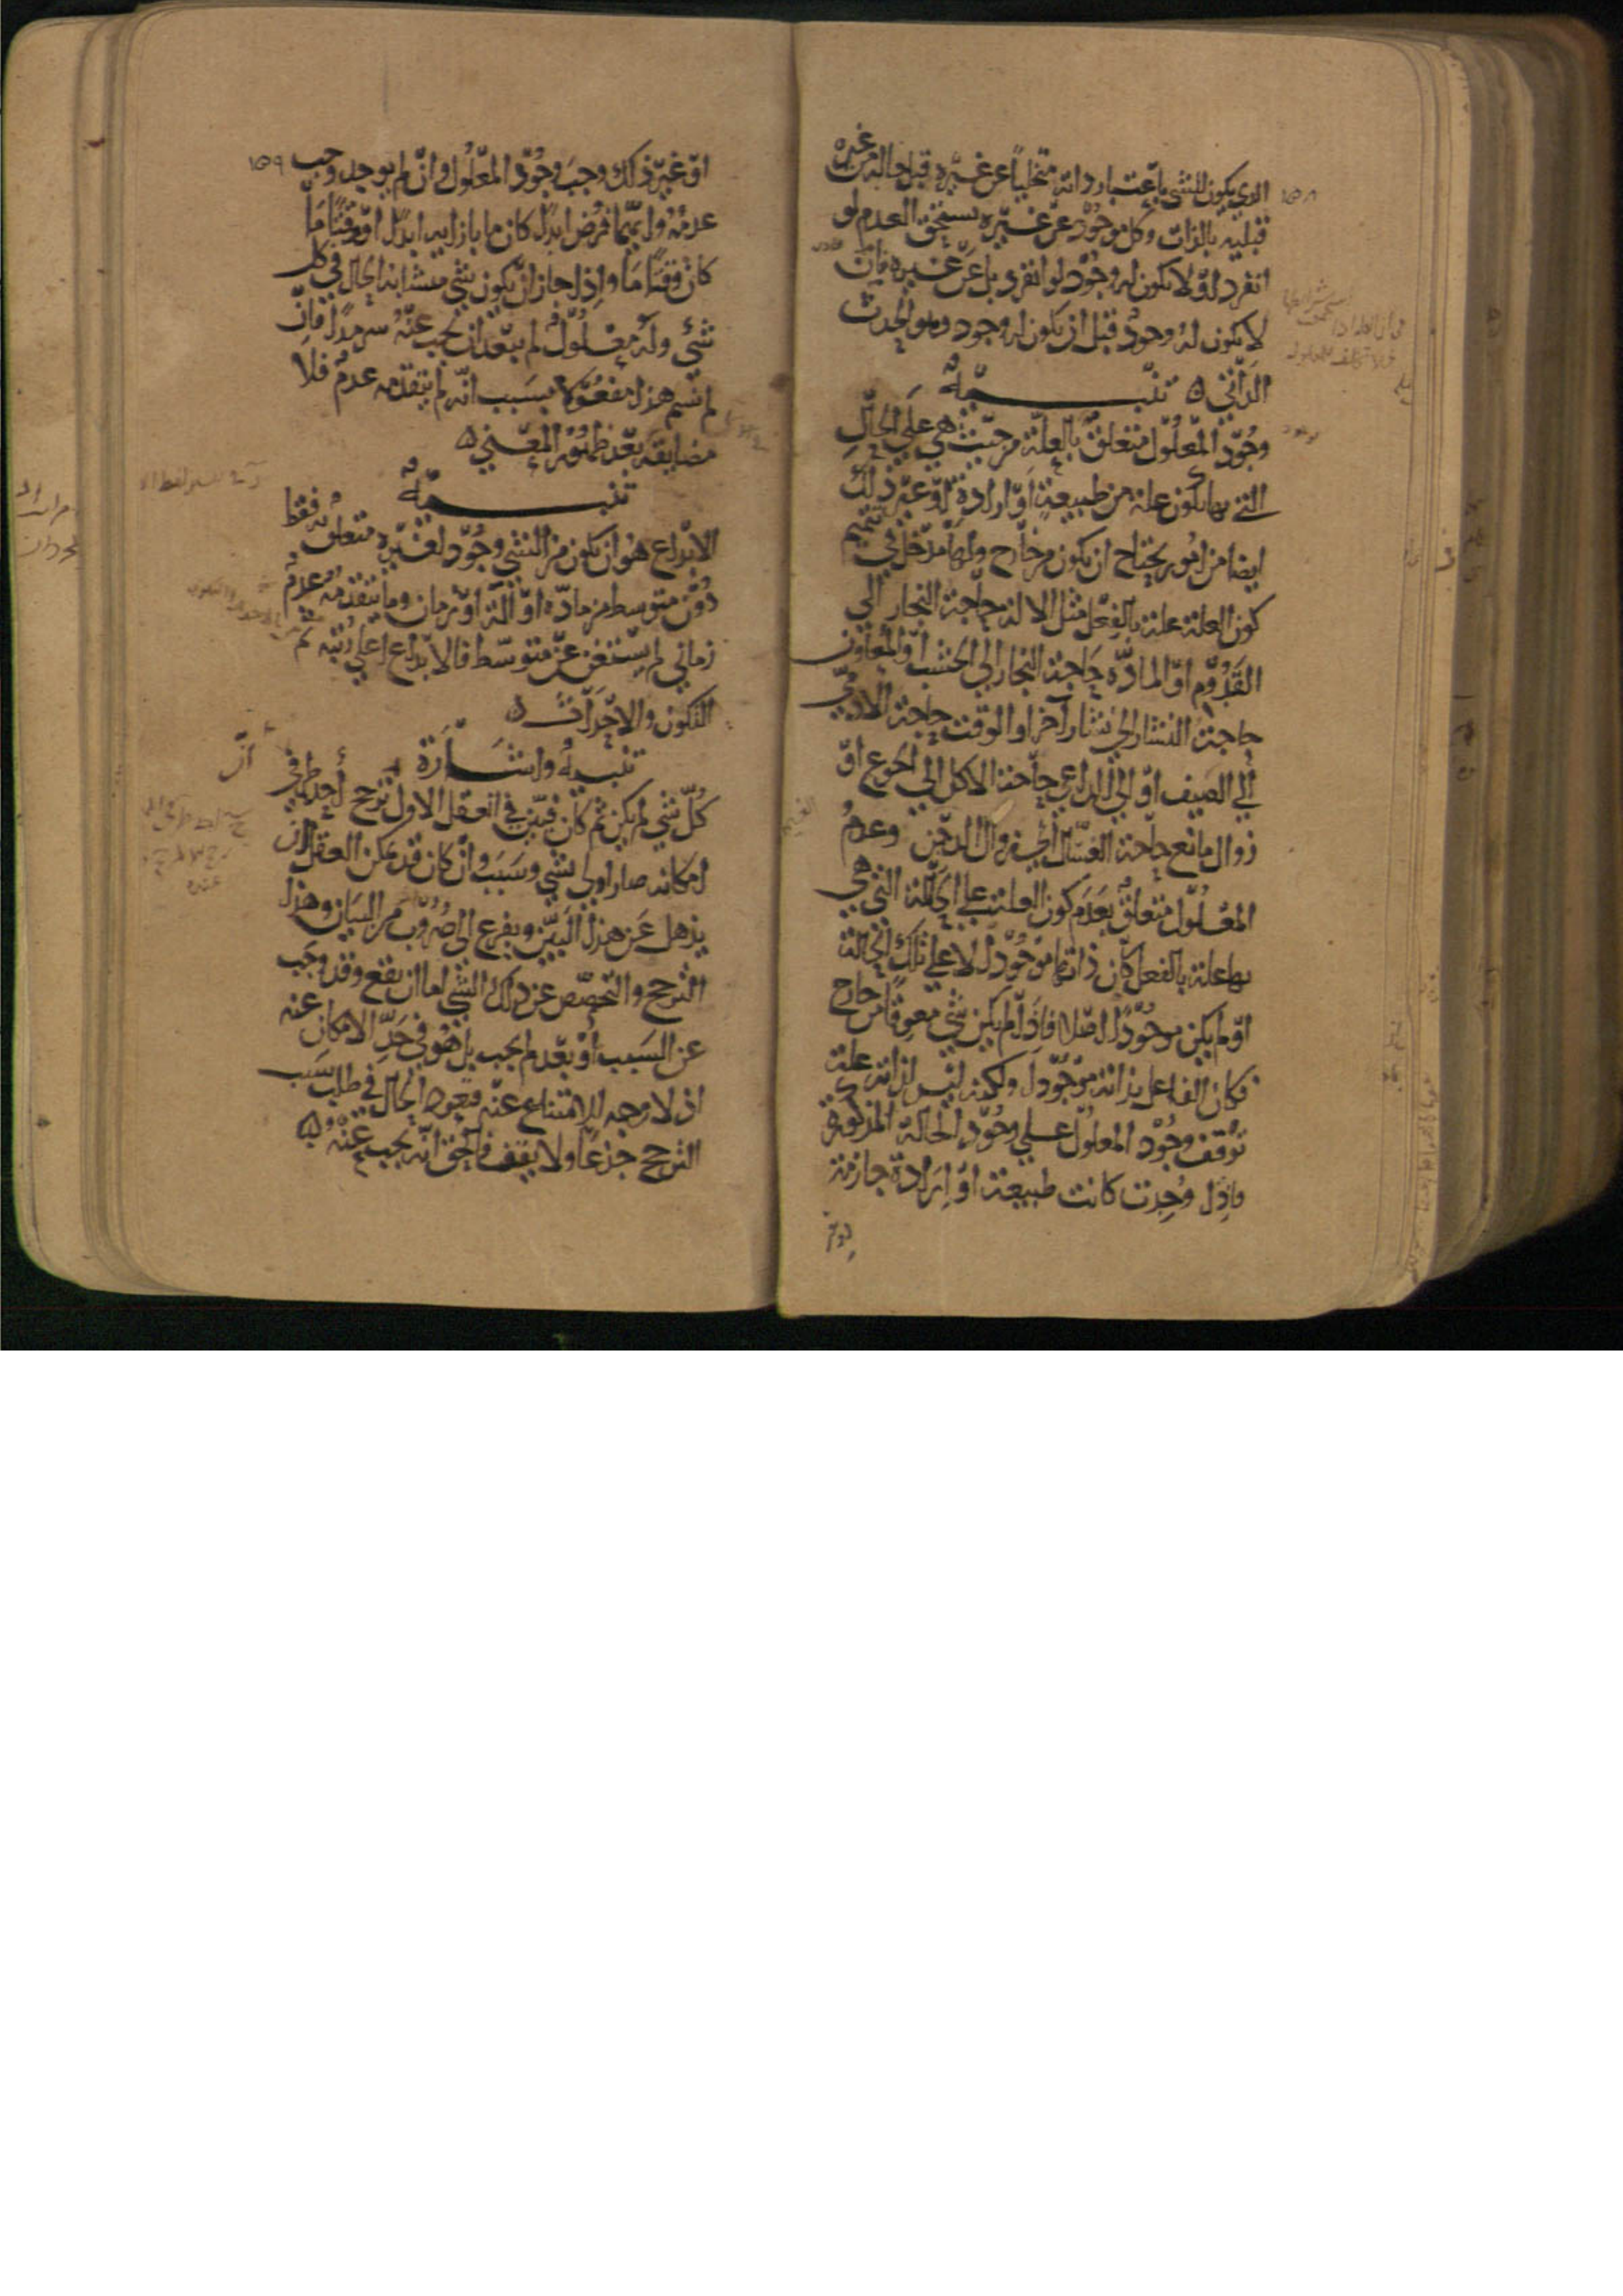 ١٥٨
الذي يكون للشي باعتبار ذاته متخلياً عن غيره قبل حاله من غيره
قبلية بالذات وكل موجود عن غيره يستحق العدم لو
انفرد او لا يكون له وجود لو انفرد بل عن غيره فاذن
لا يكون له وجود قبل ان يكون له وجود وهو الحدوث
الذاتي ۵ تنبيه
وجود المعلول متعلق بالعلة من حيث هي على الحال
التي بها تكون علة من طبيعة او ارادة او غير ذلك
ايضا من امور يحتاج ان يكون من خارج ولها مدخل في تتميم
كون العلة علة بالفعل مثل الالة حاجة النجار الى
القدوم او المادة حاجة النجار الى الخشب او المعاون
حاجة النشار الى نشار آخر او الوقت حاجة الادمي
الى الصيف او الى الداعي حاجة الاكل الى الجوع او
زوال مانع حاجة الغسال الى زوال الدجن وعدم
المعلول متعلق بعدم كون العلة على الحالة التي هي
بها علة بالفعل كان ذاتها موجودا لا على تلك الحالة
او لم يكن موجودا اصلا فاذا لم يكن شي معوقا من خارج
فكان الفاعل بذاته موجودا ولكنه ليس لذاته علة
توقف وجود المعلول على وجود الحالة المذكورة
فاذا وجدت كانت طبيعة او ارادة جازمة
١٥٩
او غير ذلك وجب وجود المعلول وان لم يوجد وجب
عدمه وايهما فرض ابدا كان ما بازايه ابدا او وقتا ما
كان وقتا ما واذا جاز ان يكون شي متشابه الحال في كل
شي وله معلول لم يبعد ان يجب عنه سرمدا فان
لم تسم هذا مفعولا بسبب انه لم يتقدمه عدم فلا
مضايقة بعد ظهور المعنى ۵
تنبيه
الابداع هو ان يكون من الشي وجود لغيره متعلق به فقط
دون متوسط من مادة او الة او زمان وما يتقدمه عدم
زماني لم يستغن عن متوسط فالابداع اعلى رتبة من
التكون والاحداث ۵
تنبيه واشارة
كل شي لم يكن ثم كان فبين في العقل الاول ان ترجح احد طرفي
امكانه صار اولى بشي وسبب وان كان قد يمكن العقل ان
يذهل عن هذا البين ويفزع الى ضروب من البيان وهذا
الترجح والتخصص عن ذلك الشي اما ان يقع وقد وجب
عن السبب او بعد لم يجب بل هو في حد الامكان عنه
اذ لا وجه للامتناع عنه فيعود الحال في طلب سبب
الترجح جذعا ولا يقف فالحق انه يجب عنه ۵